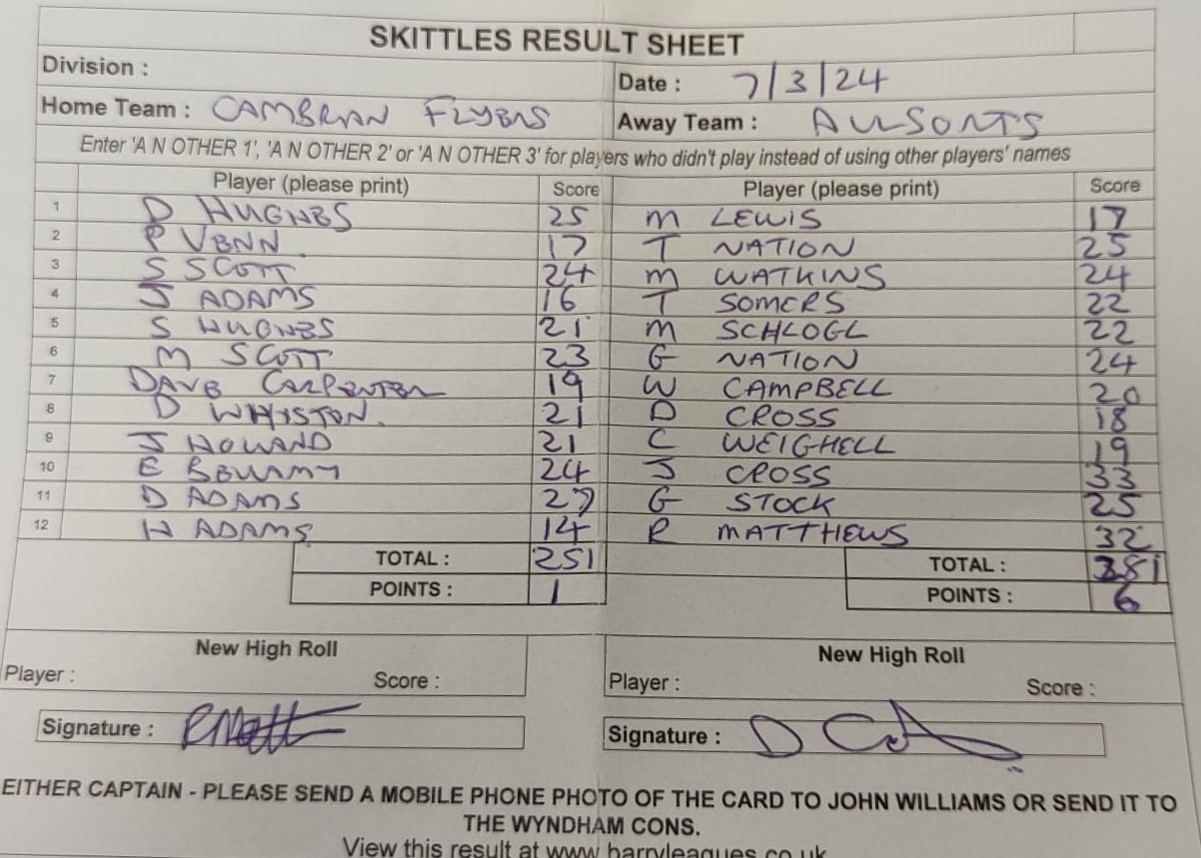 SKITTLES RESULT SHEET
Division : Date : 7/3/24
Home Team : CAMBRIAN FLYERS Away Team : ALLSORTS
Enter 'A N OTHER 1', 'A N OTHER 2' or 'A N OTHER 3' for players who didn't play instead of using other players' names
Player (please print) Score Player (please print) Score
1 D HUGHES 25 M LEWIS 17
2 P VENN 17 T NATION 25
3 S SCOTT 24 M WATKINS 24
4 J ADAMS 16 T SOMERS 22
5 S HUGHES 21 M SCHLOGL 22
6 M SCOTT 23 G NATION 24
7 DAVE CARPENTER 19 W CAMPBELL 20
8 D WHISTON. 21 D CROSS 18
9 J HOLLAND 21 C WEIGHELL 19
10 E BELLAMY 24 J CROSS 33
11 D ADAMS 27 G STOCK 25
12 H ADAMS 14 R MATTHEWS 32
TOTAL : 251 TOTAL : 281
POINTS : 1 POINTS : 6
New High Roll New High Roll
Player : Score : Player : Score :
Signature : Signature : D
EITHER CAPTAIN - PLEASE SEND A MOBILE PHONE PHOTO OF THE CARD TO JOHN WILLIAMS OR SEND IT TO
THE WYNDHAM CONS.
View this result at www.barryleagues.co.uk